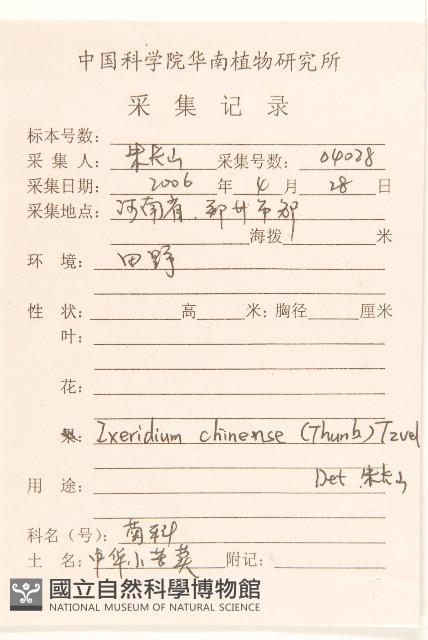 中国科学院华南植物研究所
采集记录
标本号数:
采集人: 朱长山 采集号数: 04028
采集日期: 2006 年 4 月 28 日
采集地点: 河南省.郑州市郊
海拨 米
环境: 田野
性状: 高 米; 胸径 厘米
叶:
花:
果: Ixeridium chinense (Thunb) Tzvel
Det 朱长山
用途:
科名(号): 菊科
土名: 中华小苦荬 附记:
國立自然科學博物館
NATIONAL MUSEUM OF NATURAL SCIENCE